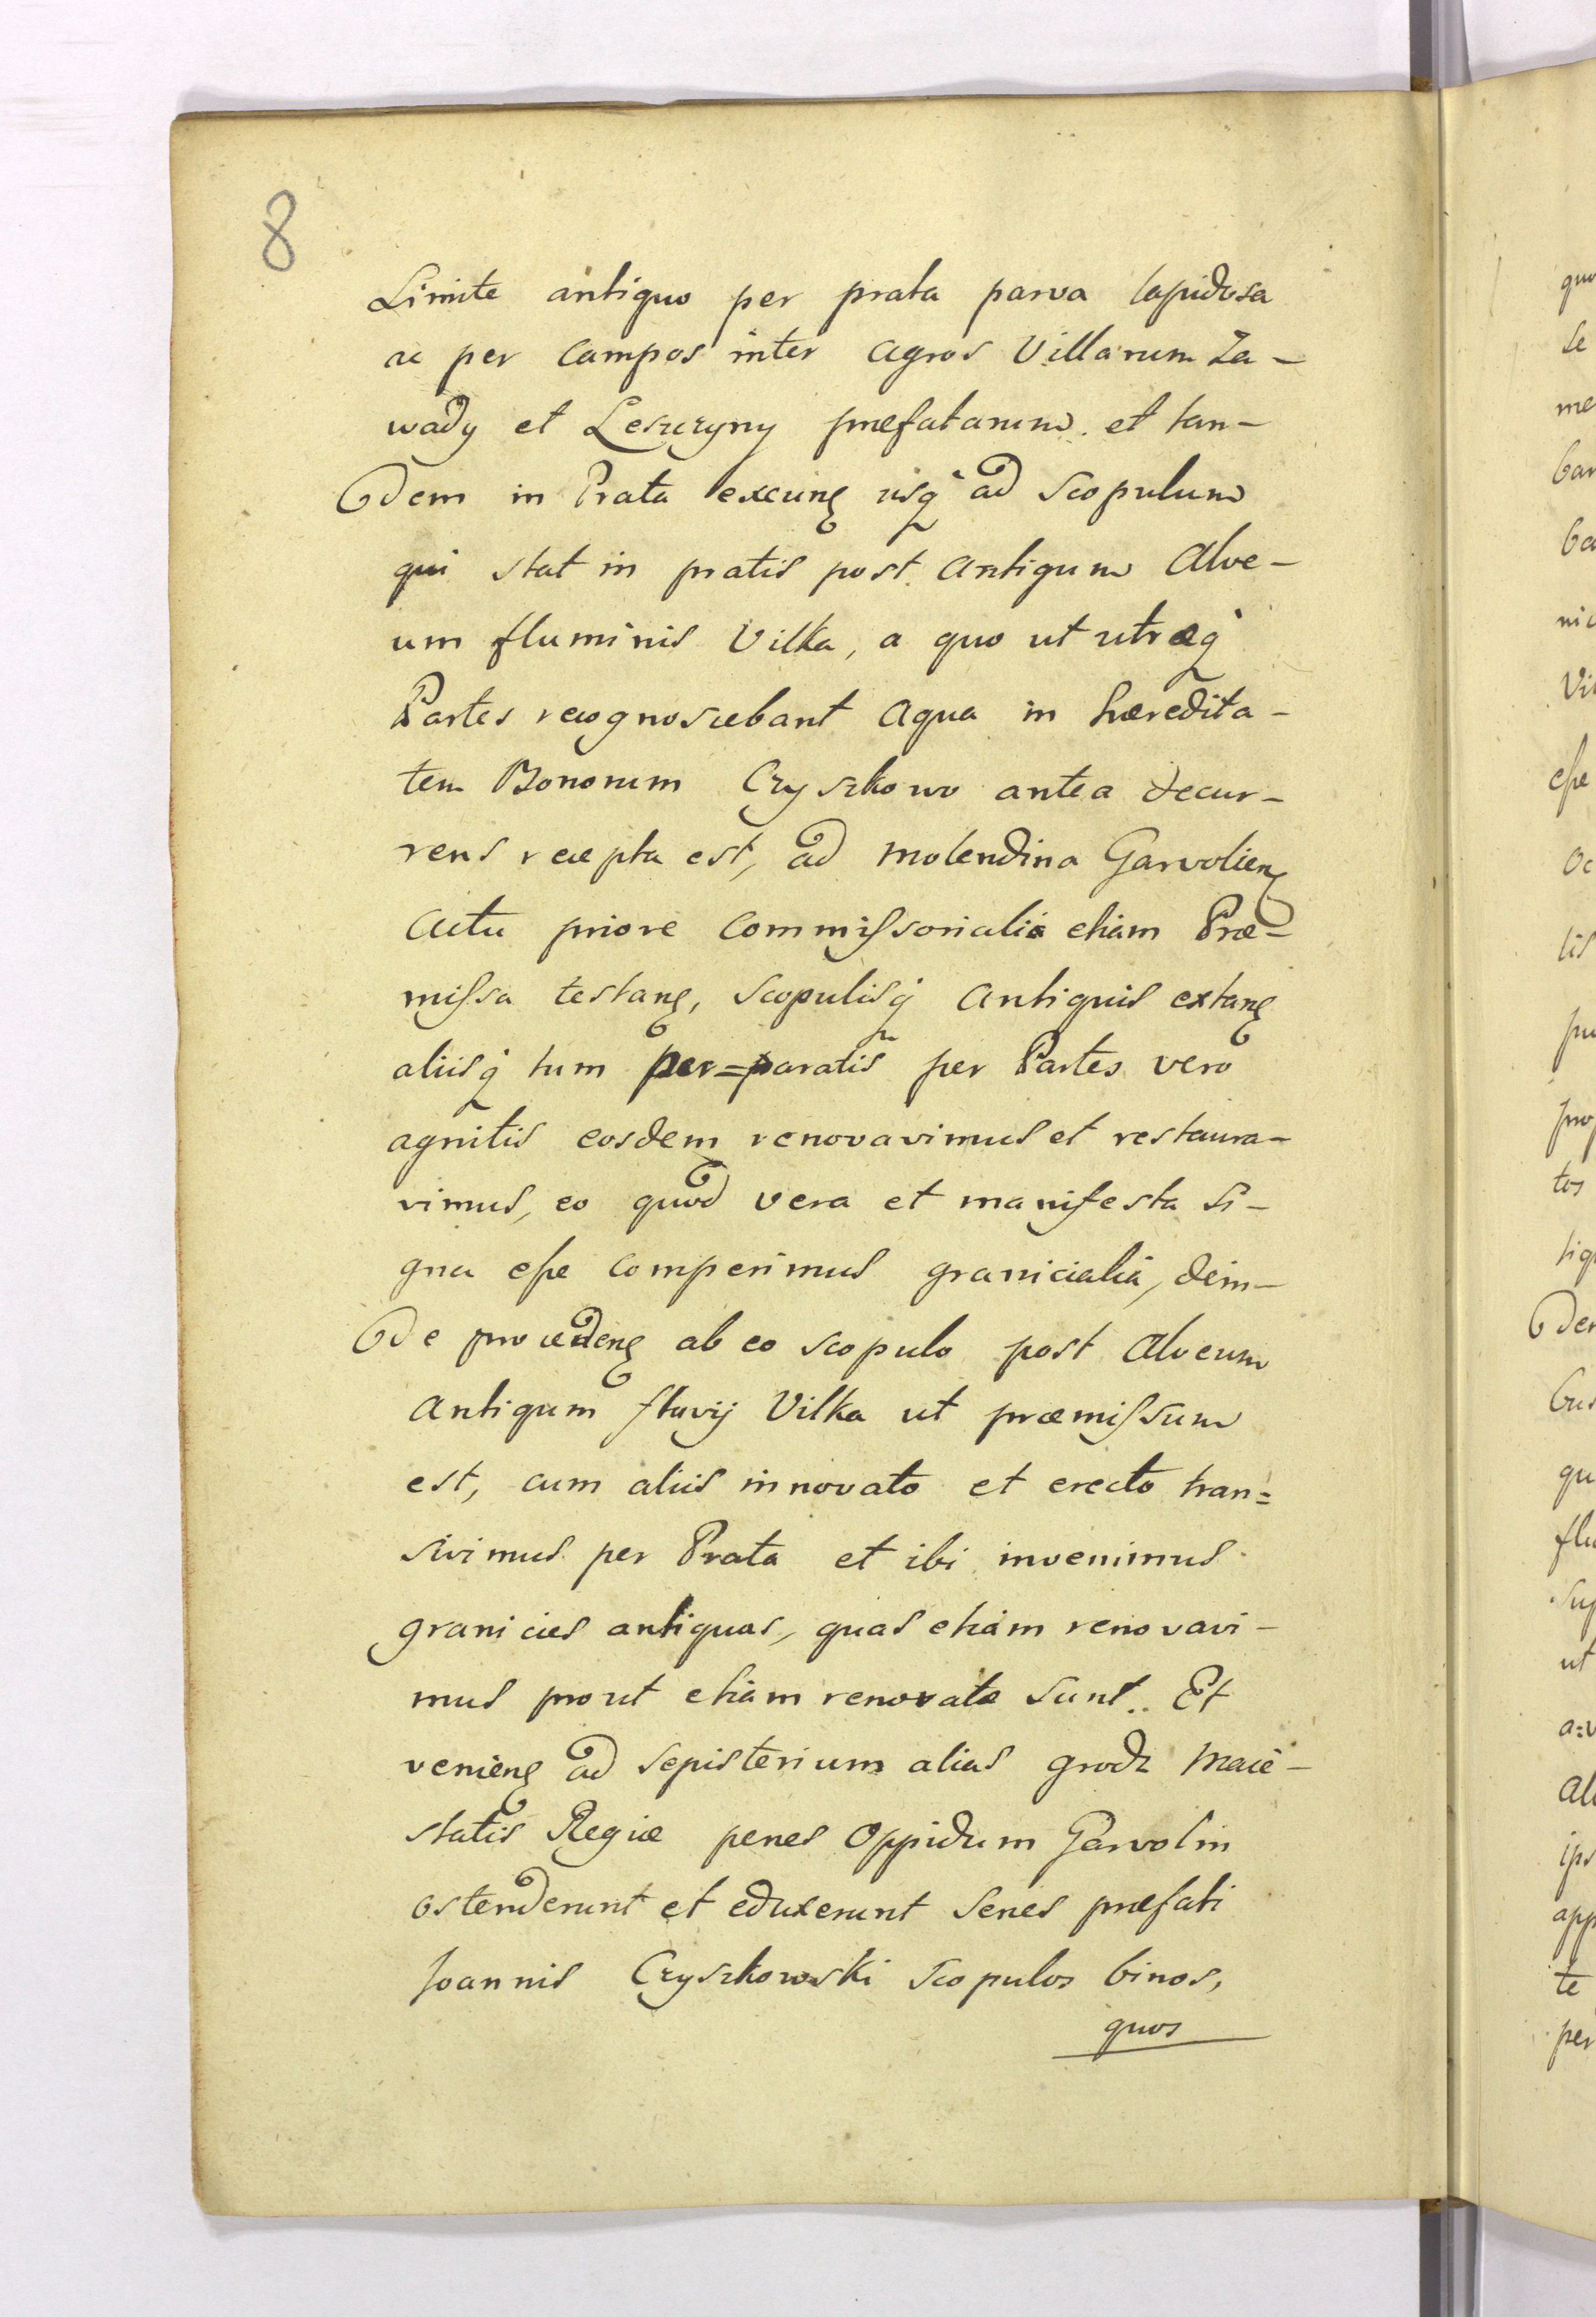 8
Limite antiquo per prata parva lapidosa
ac per campos inter agros Villarum Za-
wady et Leszczyny præfatarum et tan-
dem in Prata exeunt usq ad Scopulum
qui stat in pratis post antiquum Alve-
um fluminis Vilka, a quo ut utræq
Partes recognoscebant aqua in hæredita-
tem Bonorum Czyszkowo antea decur-
rens recepta est, ad molendina Garvolien
actu priore commissorialia etiam Præ-
missa testant, Scopulisq antiquis extant
aliisq tum per=paratis per Partes vero
agnitis eosdem renovavimus et restaura-
vimus, eo quod vera et manifesta si-
gna esse comperimus granicialia, dein-
de proceden ab eo scopulo post Alveum
Antiqum fluvij Vilka ut præmissum
est, cum aliis innovato et erecto tran=
sivimus per Prata et ibi invenimus
granicies antiquas, quas etiam renovavi-
mus prout etiam renovatæ sunt. Et
venien ad sepisterium alias grodz Maie-
statis Regiæ penes Oppidum Garvolin
ostenderunt et eduxerunt Senes præfati
Joannis Czyszkowski Scopulos binos,
quos